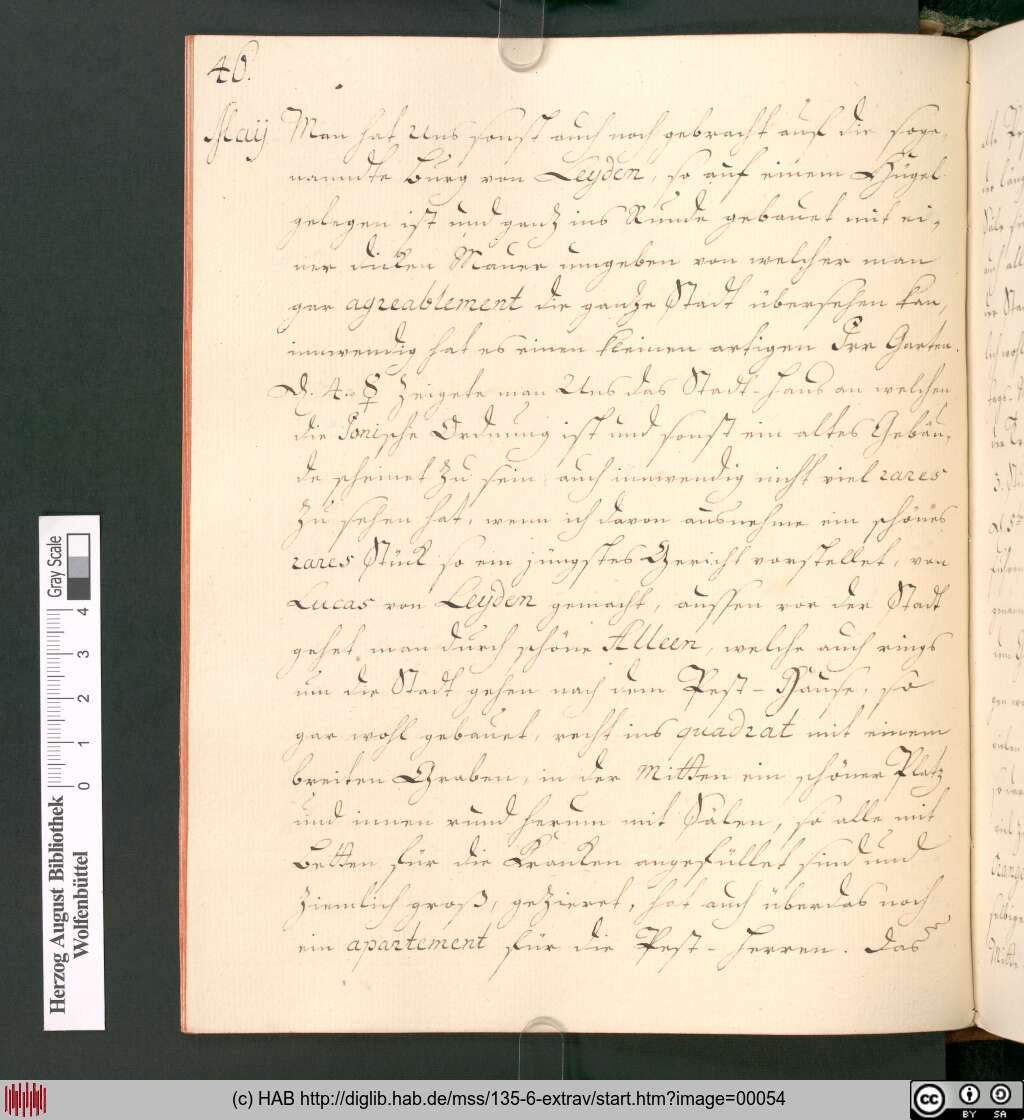 46.
Maij Man hat Uns sonst auch noch gebracht auf die soge-
nanndte Burg von Leyden, so auf einem Hügel
gelegen ist und gantz ins Runde gebauet mit ei-
ner dicken Mauer umgeben von welcher man
gar agreablement die gantze Stadt übersehen kan,
innwendig hat es einen kleinen artigen Irr Garten.
D. 4. ☿ Zeigete man Uns das Stadt-Haus an welchen
die Jonische Ordnung ist und sonst ein altes Gebäu-
de scheinet zu sein, auch innwendig nicht viel rares
zu sehen hat, wenn ich davon ausnehme ein schönes
rares Stück so ein jüngstes Gericht vorstellet, von
Lucas von Leyden gemacht, aussen vor der Stadt
gehet man durch schöne Alleen, welche auch rings
um die Stadt gehen nach dem Pest-Hause, so
gar wohl gebauet, recht ins quadrat mit einem
breiten Graben, in der Mitten ein schöner Platz
und innen rund herum mit Sälen, so alle mit
Betten für die Krancken angefüllet sind und
ziemlich groß, gezieret, hat auch überdas noch
ein apartement für die Pest-Herren. Das
Gray Scale
0 1 2 3 4
Herzog August Bibliothek
Wolfenbüttel
(c) HAB http://diglib.hab.de/mss/135-6-extrav/start.htm?image=00054
cc BY SA